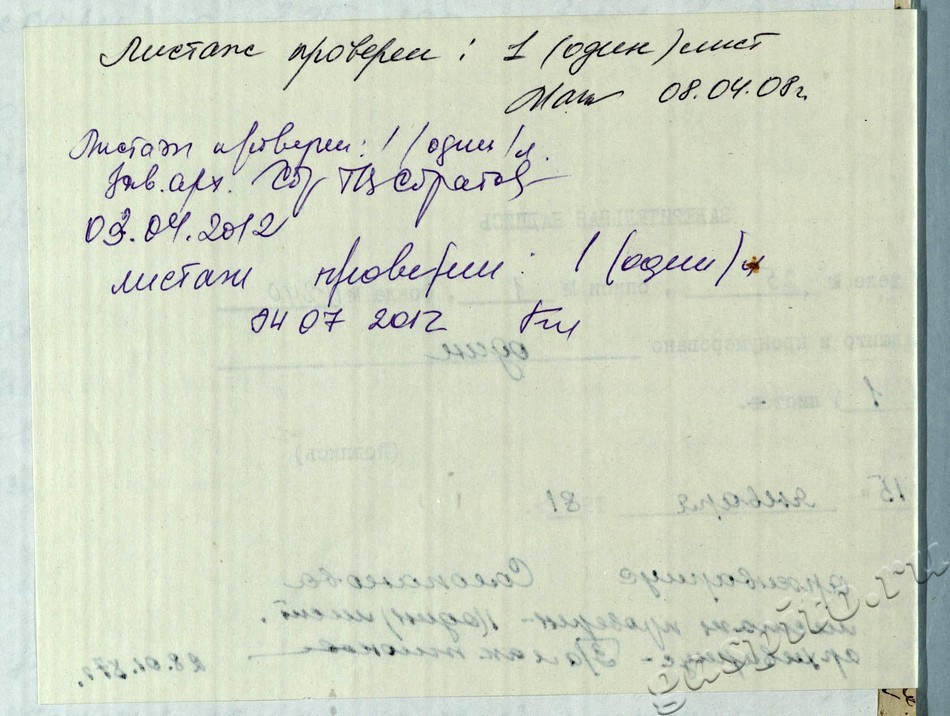 Листаж проверен: 1 (один) лист
08.04.08г.
Листаж проверен: 1 (один) л.
Зав. арх.
03.04.2012
листаж проверен: 1 (один) л
04 07 2012
ЗАВЕРИТЕЛЬНАЯ НАДПИСЬ
деле № 25, описи № 1
шито и пронумеровано один
1) листов.
(Подпись)
15 января 81
архивариус
листаж проверен - 1 (один) лист.
архивариус -
28.01.87г.